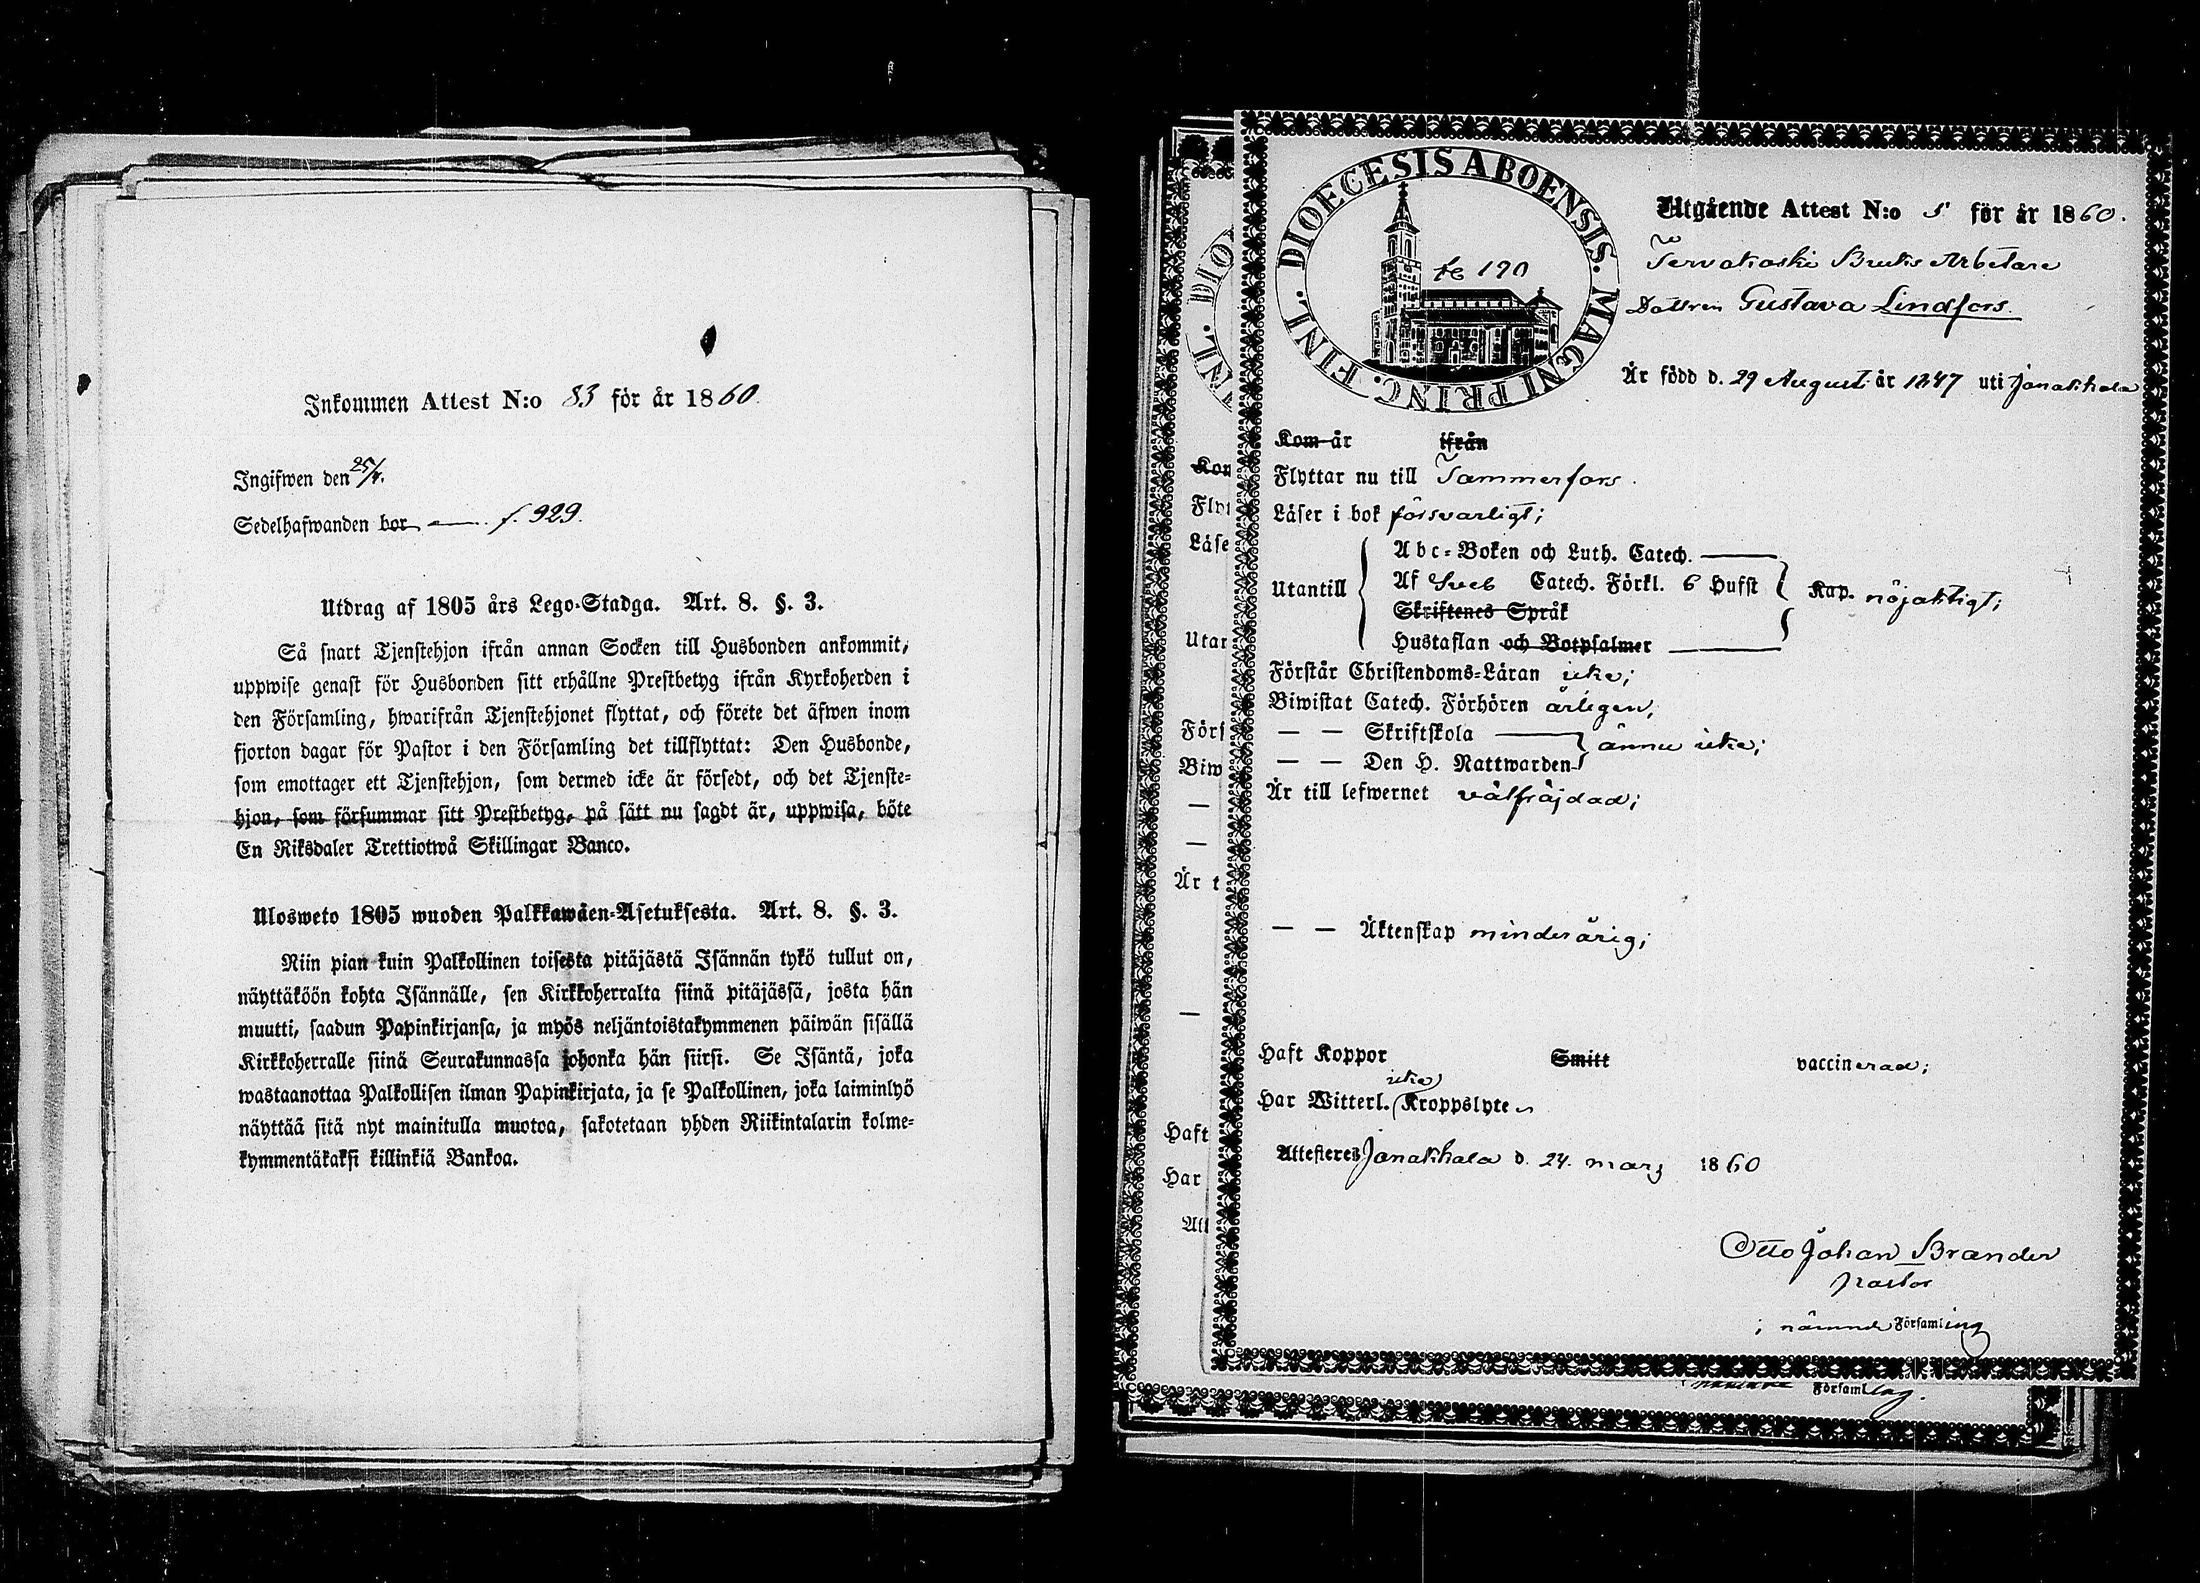 Inkommen Attest N:o 83 för år 1860.
Ingifwen den 25/4.
Sedelhafwanden bor f. 929.
Utdrag af 1805 års Lego-Stadga. Art. 8. §. 3.
Så snart Tjenstehjon ifrån annan Socken till Husbonden ankommit,
uppwise genast för Husbonden sitt erhållne Prestbetyg ifrån Kyrkoherden i
den Församling, hwarifrån Tjenstehjonet flyttat, och förete det äfwen inom
fjorton dagar för Pastor i den Församling det tillflyttat: Den Husbonde,
som emottager ett Tjenstehjon, som dermed icke är försedt, och det Tjenste-
hjon, som försummar sitt Prestbetyg, på sätt nu sagdt är, uppwisa, böte
En Riksdaler Trettiotwå Skillingar Banco.
Ulosweto 1805 wuoden Palkkawäen-Asetuksesta. Art. 8. §. 3.
Niin pian kuin Palkollinen toisesta pitäjästä Isännän tykö tullut on,
näyttäköön kohta Isännälle, sen Kirkkoherralta siinä pitäjässä, josta hän
muutti, saadun Papinkirjansa, ja myös neljäntoistakymmenen päiwän sisällä
Kirkkoherralle siinä Seurakunnassa johonka hän siirsi. Se Isäntä, joka
wastaanottaa Palkollisen ilman Papinkirjata, ja se Palkollinen, joka laiminlyö
näyttää sitä nyt mainitulla muotoa, sakotetaan yhden Riikintalarin kolme-
kymmentäkaksi killinkiä Bankoa.
DIOECESIS ABOENSIS. MAGNI PRINC. FINL.
190
Utgående Attest N:o 5 för år 1860.
Tervakoski Bruks Arbetare
Dottren Gustava Lindfors.
Är född d. 29 August. år 1847 uti Janakkala
Kom år ifrån
Flyttar nu till Tammerfors.
Läser i bok försvarligt;
Utantill
Abc-Boken och Luth. Catech.
Af Sveb Catech. Förkl. 6 Hufst
Skriftenes Språk
Hustaflan och Botpsalmer
Kap. nöjaktigt;
Förstår Christendoms-Läran icke;
Biwistat Catech. Förhören årligen;
— — Skriftskola
— — Den H. Nattwarden
ännu icke;
Är till lefwernet välfräjdad;
— — Äktenskap minderårig;
Haft Koppor Smitt vaccinerad;
Har Witterl. icke Kroppslyte
Attesteres Janakkala d. 24. mars 1860
Otto Johan Brander
pastor
i nämnde Församling
Församling.